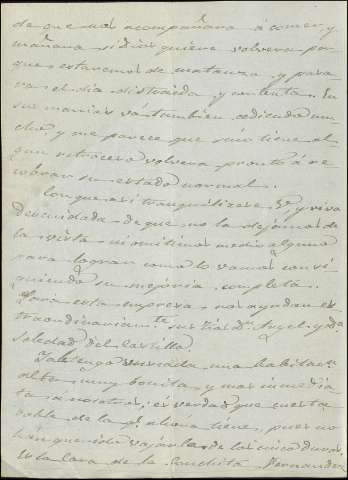 de que nos acompañara á comer, y
mañana si Dios quiere volvera por
que estaremos de matanza y pasa
ra el dia distraida y contenta. En
sus manias vá tambien cediendo mu
cho, y me parece que si no tiene al
gun retroceso volvera pronto á re
cobrar su estado normal.
Conque asi tranquilicese V. y viva
descuidada de que no la dejamos de
la vista ni omitimos medio alguno
para lograr como lo vamos consi
guiendo su mejoria completa.
Para esta empresa nos ayudan es
traordinariamte sus tias Da. Angel. y Da.
Soledad del Castillo.
Ya le tengo buscada una habitacn.
alta muy bonita, y mas inmedia
ta á nosotros; es verdad que cuesta
doble de la q. ahora tiene, pues no
han querido vajarla de los cinco duros.
Es la casa de la Conchita Fernandez